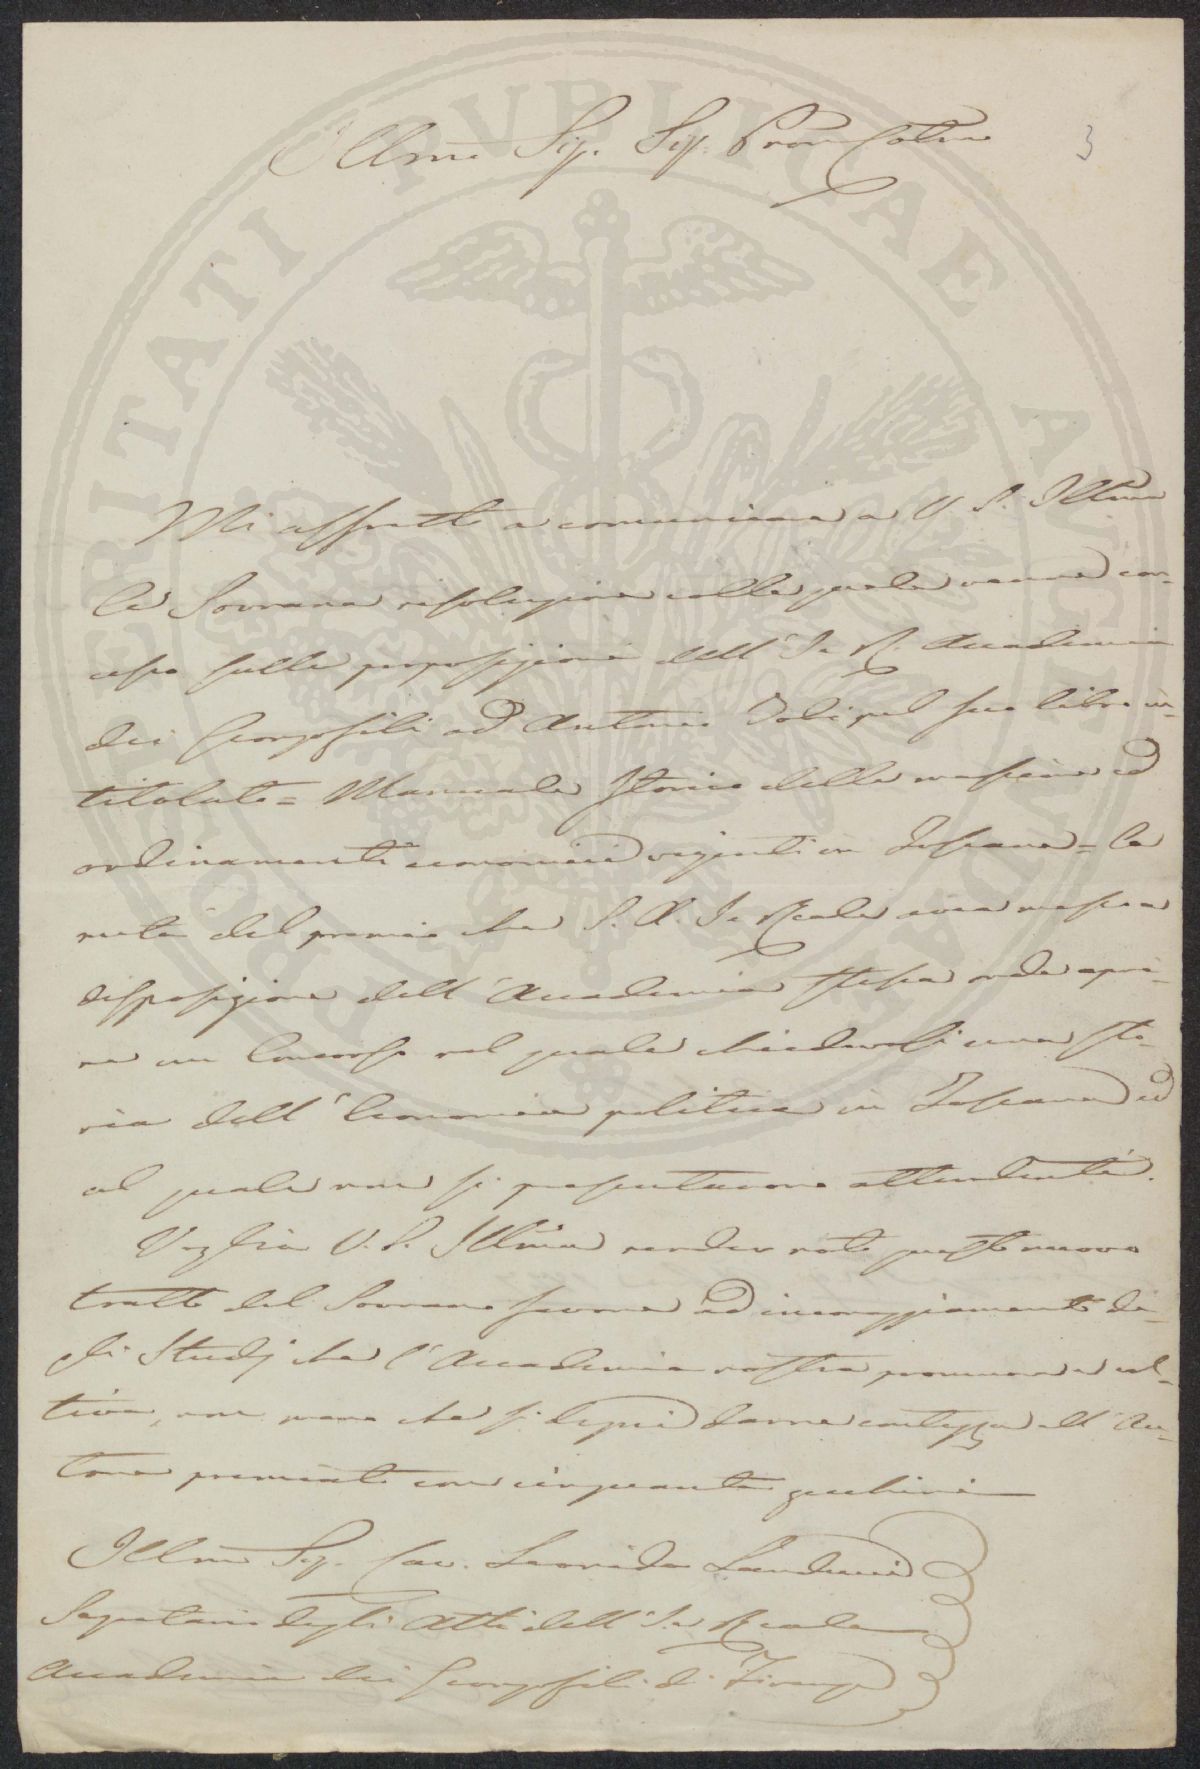 Illmo Sig. Sig. Pron Colmo
3
Mi affretto a comunicare a V. S. Illma
la Sovrana risoluzione colla quale venne con-
cesso sulla proposizione dell' I. e R. Accademia
dei Georgofili ad Antonio Zobi pel suo libro in-
titolato = Manuale Storico delle massime ed
ordinamenti economici vigenti in Toscana = la
metà del premio che S. A. I. e Reale avea messo a
disposizione dell' Accademia stessa onde apri-
re un Concorso nel quale chiedevasi una sto-
ria dell' Economia politica in Toscana ed
al quale non si presentarono attendenti.
Voglia V. S. Illma render noto questo nuovo
tratto del Sovrano favore ed incoraggiamento de-
gli Studj che l' Accademia nostra promuove e col-
tiva, non meno che si degni darne contezza all' Au-
tore premiato con cinquanta zecchini
Illmo Sig. Cav. Leonida Landucci
Segretario degli Atti dell' I. e Reale
Accademia dei Georgofili di Firenze
PROSPERITATI PVBLICAE AVGENDAE